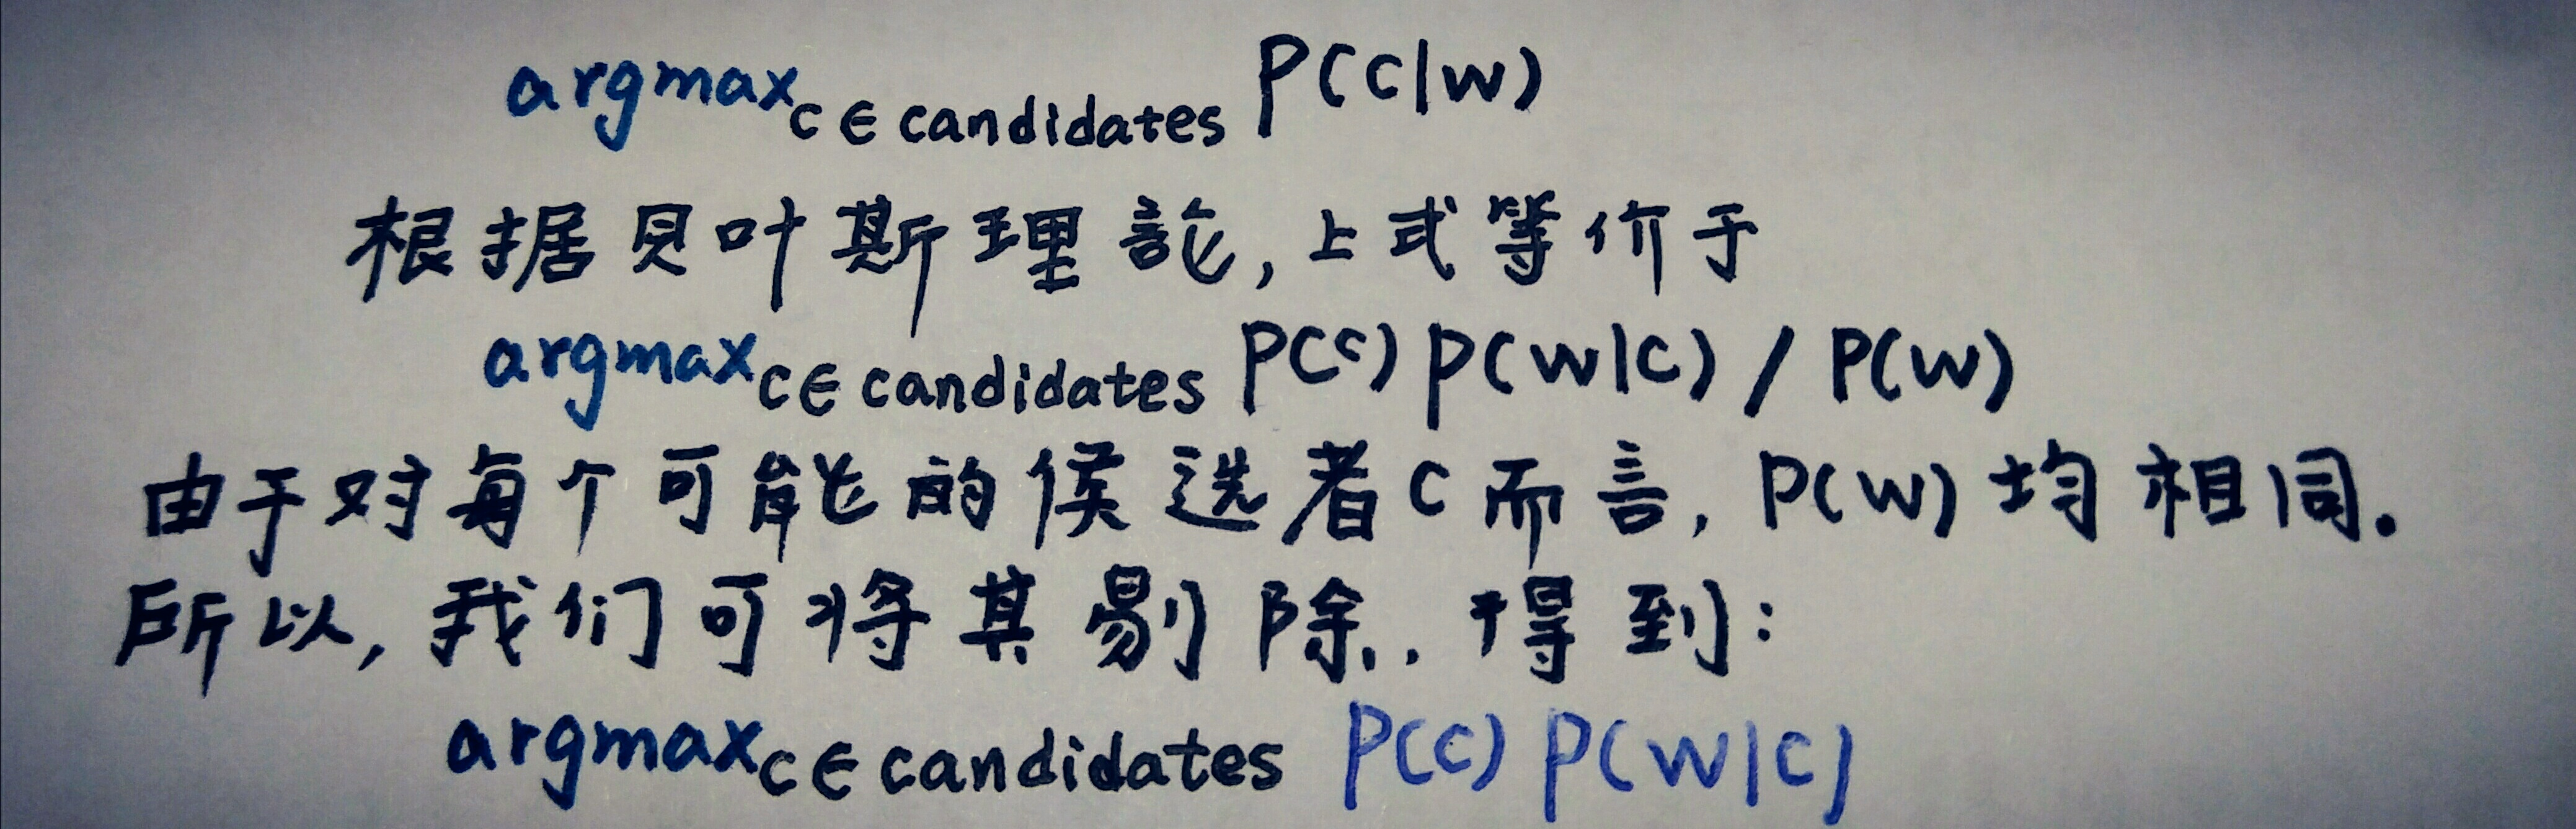 argmax c ∈ candidates P(c|w)
根据贝叶斯理论,上式等价于
argmax c ∈ candidates P(c) P(w|c) / P(w)
由于对每个可能的候选者c而言, P(w) 均相同.
所以,我们可将其剔除..得到:
argmax c ∈ candidates P(c) P(w|c)